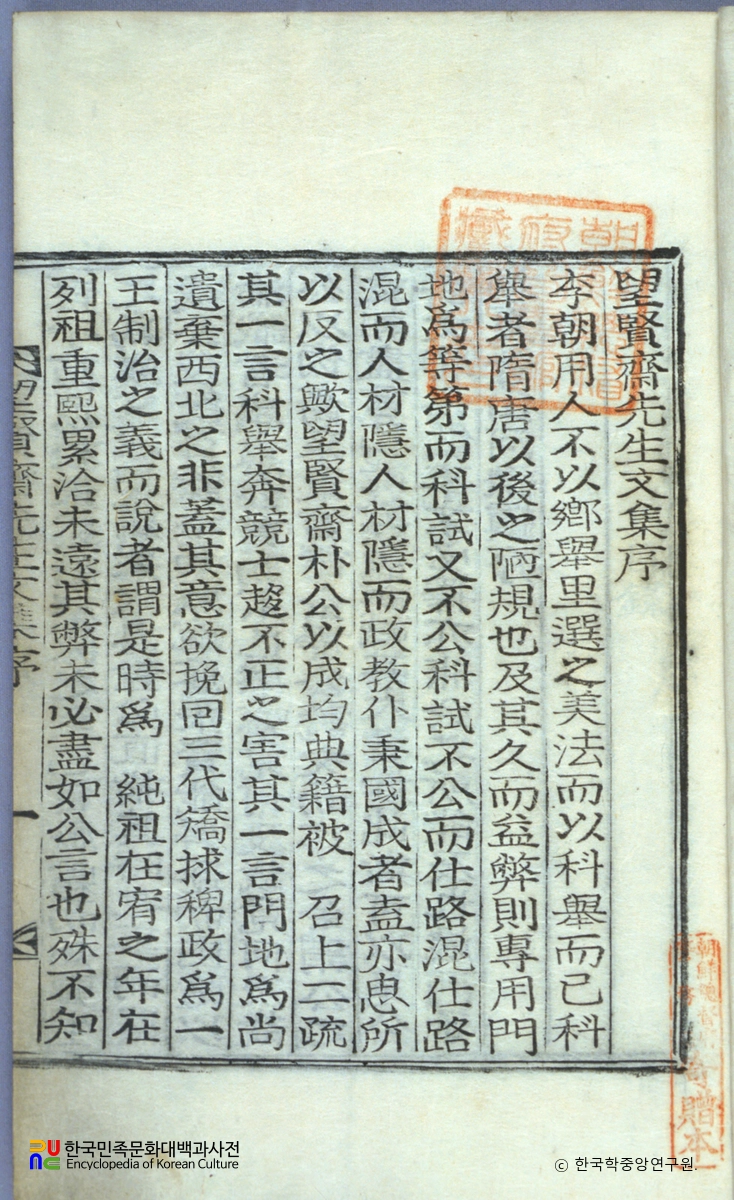 望賢齋先生文集序
李朝用人不以鄕擧里選之美法而以科擧而已科
擧者隋唐以後之陋規也及其久而益弊則專用門
地爲等第而科試又不公科試不公而仕路混仕路
混而人材隱人材隱而政敎仆秉國成者盍亦思所
以反之歟望賢齋朴公以成均典籍被 召上二疏
其一言科擧奔競士趍不正之害其一言門地爲尙
遺棄西北之非盖其意欲挽回三代矯捄稗政爲一
王制治之義而說者謂是時爲 純祖在宥之年在
列祖重熙累洽未遠其弊未必盡如公言也殊不知
望賢齋先生文集序
一
寄贈本
한국민족문화대백과사전
Encyclopedia of Korean Culture
© 한국학중앙연구원.